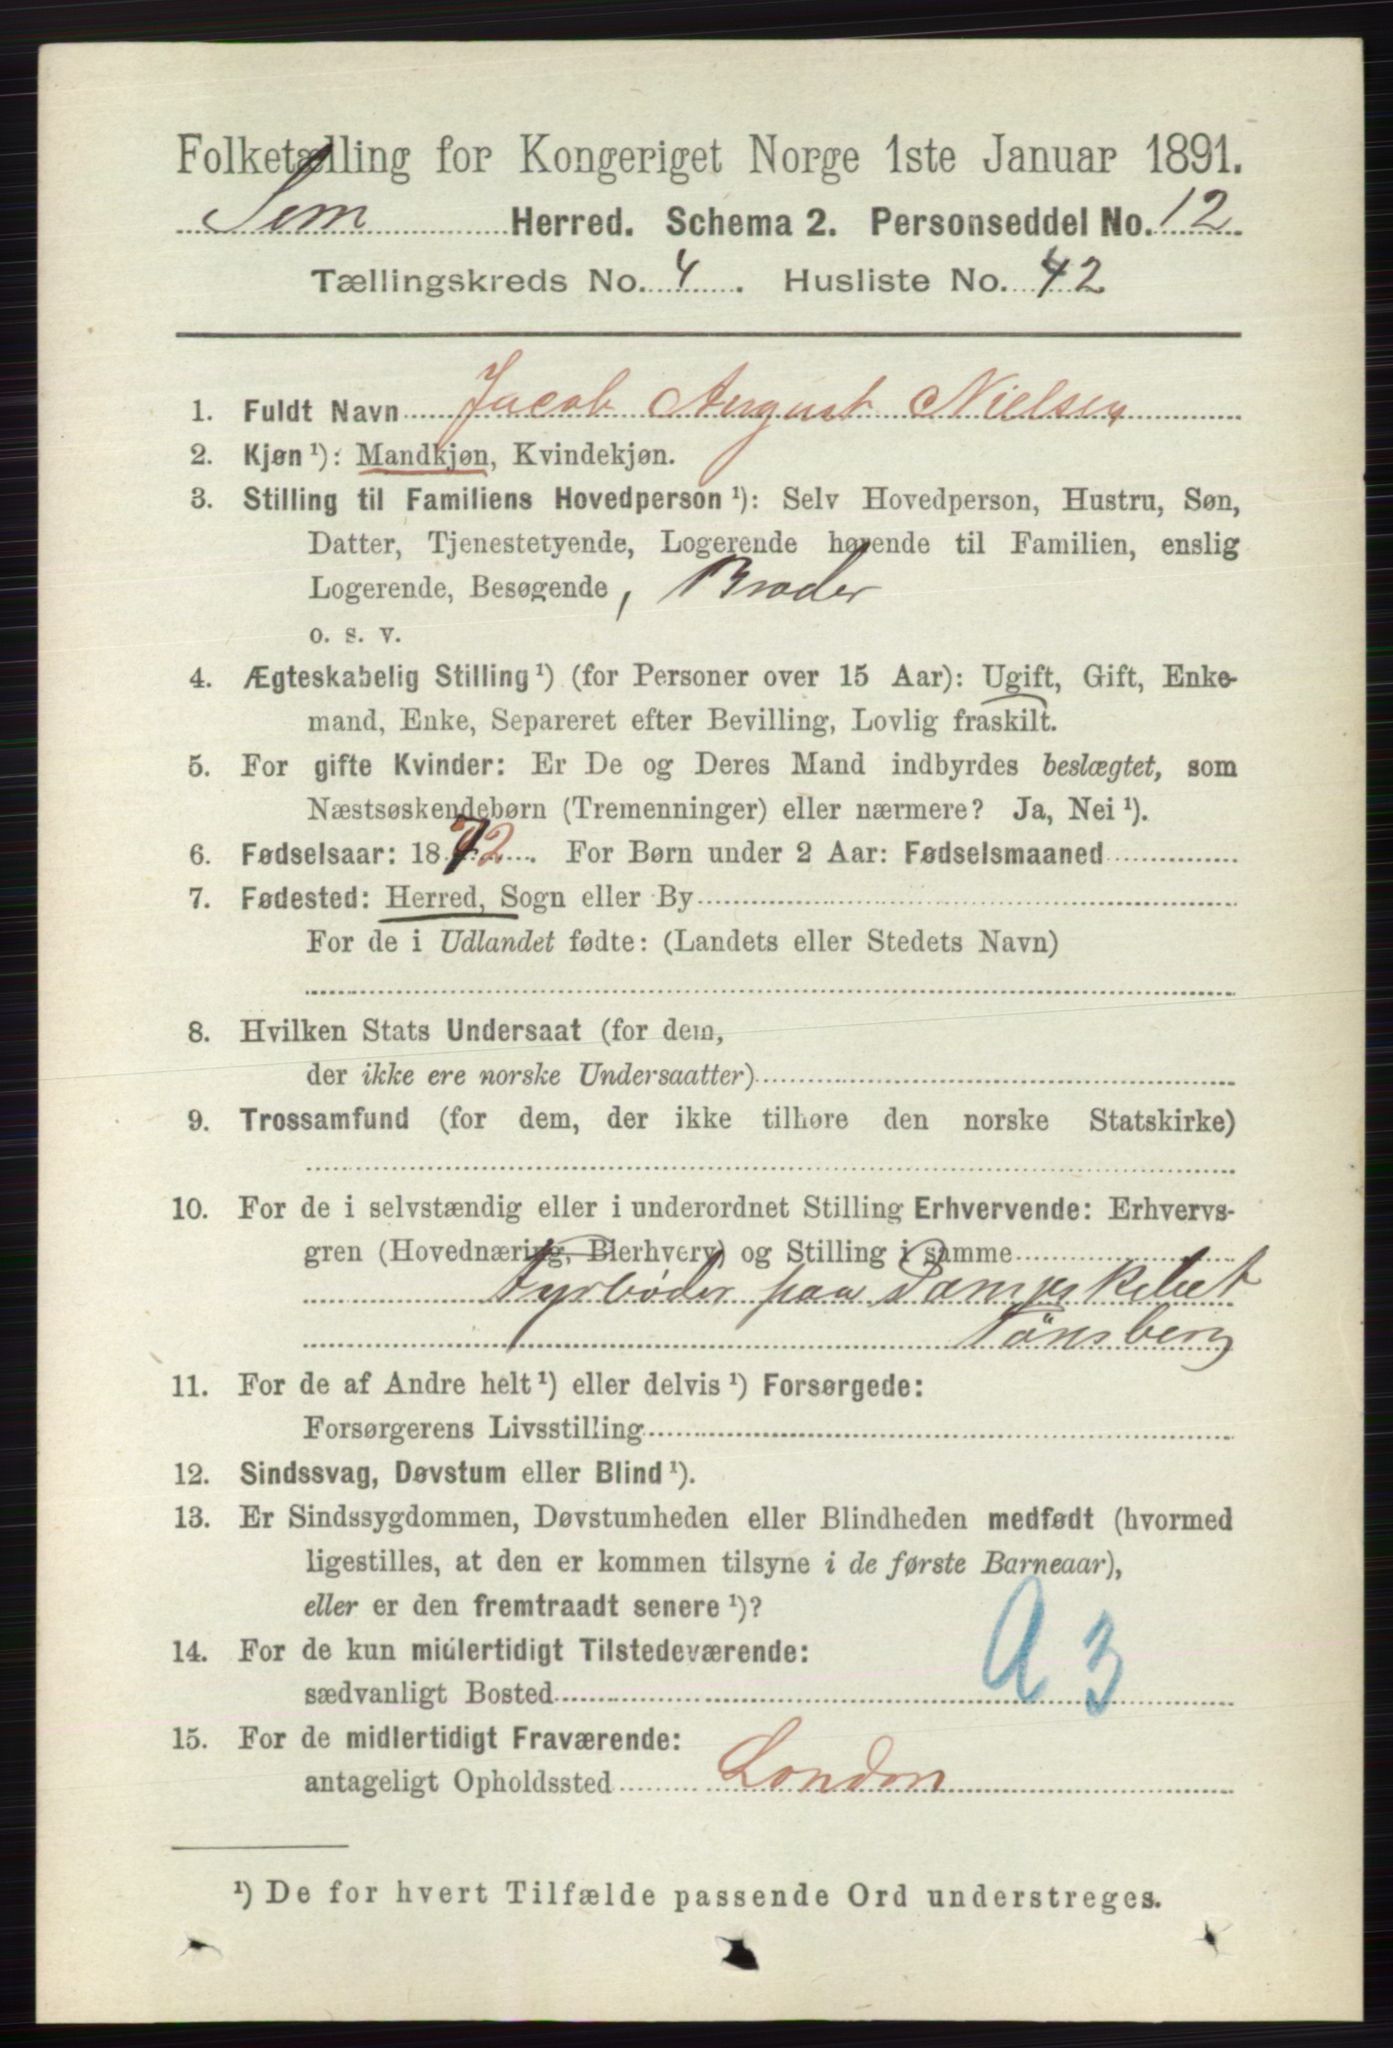 Folketælling for Kongeriget Norge 1ste Januar 1891.
Sem Herred. Schema 2. Personseddel No. 12
Tællingskreds No. 4. Husliste No. 42
1. Fuldt Navn Jacob August Nielsen
2. Kjøn ¹): Mandkjøn, Kvindekjøn.
3. Stilling til Familiens Hovedperson ¹): Selv Hovedperson, Hustru, Søn,
Datter, Tjenestetyende, Logerende hørende til Familien, enslig
Logerende, Besøgende, Broder
o. s. v.
4. Ægteskabelig Stilling ¹) (for Personer over 15 Aar): Ugift, Gift, Enke-
mand, Enke, Separeret efter Bevilling, Lovlig fraskilt.
5. For gifte Kvinder: Er De og Deres Mand indbyrdes beslægtet, som
Næstsøskendebørn (Tremenninger) eller nærmere? Ja, Nei ¹).
6. Fødselsaar: 1872. For Børn under 2 Aar: Fødselsmaaned
7. Fødested: Herred, Sogn eller By
For de i Udlandet fødte: (Landets eller Stedets Navn)
8. Hvilken Stats Undersaat (for dem,
der ikke ere norske Undersaatter)
9. Trossamfund (for dem, der ikke tilhøre den norske Statskirke)
10. For de i selvstændig eller i underordnet Stilling Erhvervende: Erhvervs-
gren (Hovednæring, Bierhverv) og Stilling i samme
Fyrbøder paa Dampskibet
Tönsberg
11. For de af Andre helt ¹) eller delvis ¹) Forsørgede:
Forsørgerens Livsstilling
12. Sindssvag, Døvstum eller Blind ¹).
13. Er Sindssygdommen, Døvstumheden eller Blindheden medfødt (hvormed
ligestilles, at den er kommen tilsyne i de første Barneaar),
eller er den fremtraadt senere ¹)?
14. For de kun midlertidigt Tilstedeværende:
sædvanligt Bosted
A 3
15. For de midlertidigt Fraværende:
antageligt Opholdssted London
¹) De for hvert Tilfælde passende Ord understreges.